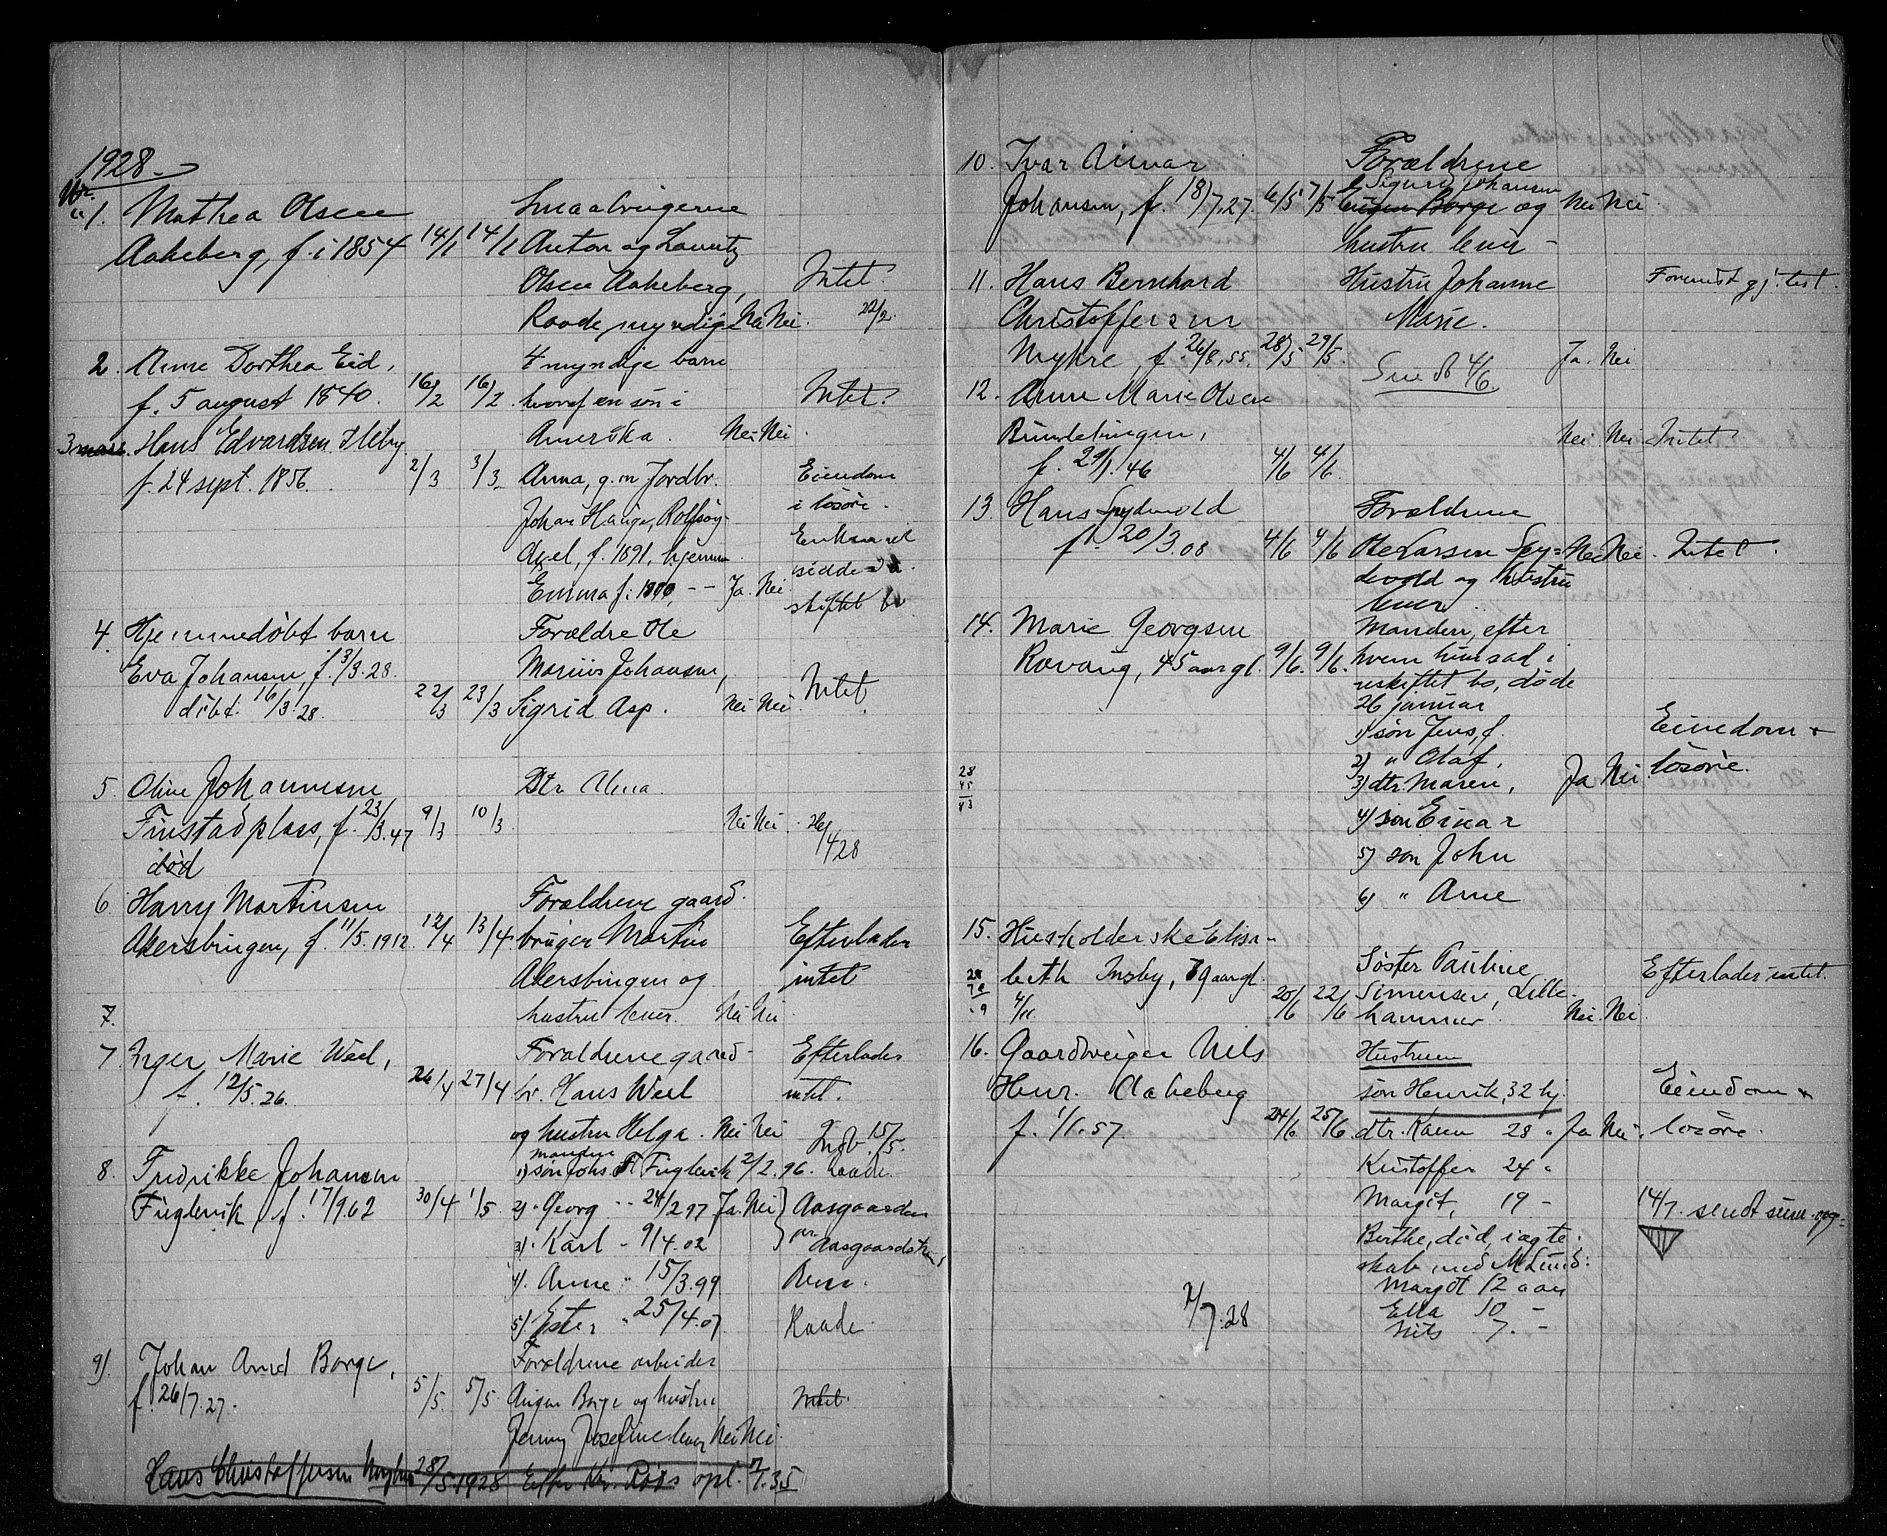 1928.
Nr.
1. Mathea Olsen Smaabrugerne
Aakeberg, f. i 1854 14/1 14/1 Anton og Lauritz
Olsen Aakeberg, Intet.
Raade, myndige Nei Nei. 22/2.
2. Anne Dorthea Eid, 4 myndige barn
f. 5 august 1840. 16/2 16/2 hvoraf en søn i Intet.
Amerika. Nei Nei.
3 Hans Edvardsen Heby
f. 24 sept. 1856. 2/3 3/3 Anna, g. m. Jordbr. Eiendom
Johan Hauge, Rolfsøy i løsøre.
Axel, f. 1891, hjemme Enkens
Emma f. Ja. Nei. skiftet bo
4. Hjemmedøbt barn Forældre Ole
Eva Johansen, f. 3/3.28. Marius Johansen,
døbt. 16/3.28. 22/3 23/3 Sigrid Asp. Nei Nei. Intet.
5. Oline Johannesen Dtr. Anna.
Finstadplass, f. 23/3.47 9/3 10/3 Nei Nei. 26/4 28
død
6. Harry Martinsen Forældrene gaard-
Akersbingen, f. 11/5.1912. 12/4 13/4. bruger Martin Efterlader
Akersbingen og intet
hustru lever. Nei Nei.
7.
7. Inger Marie Weel, Forældrene gaard- Efterlades
f. 12/5.26. 26/4 27/4 br. Hans Weel intet.
og hustru Helga. Nei Nei Indb. 15/5.
manden
8. Fredrikke Johansen 1) søn Johs Fuglevik 2/2.96. Raade.
Fuglevik, f. 17/9 62 30/4 1/5. 2) " Georg 24/2 97 Ja. Nei Aasgaarden
3) " Karl 9/4.02 Aasgaardstran
4) Anne " 15/3.99
5) Ester " 25/4.07 Raade.
Forældrene arbeider
9). Johan Arned Borge,
f. 26/7.27. 5/5. 5/5. Borge og hustru Intet.
Jenny Josefine lever Nei Nei.
Hans Christoffersen Myhre 28/5 1928 opl. 7/1.35
10. Ivar Johansen, f. 18/7.27. 6/5 7/5 Forældrene
Sigurd Johansen
Eugen Borge og Nei Nei.
hustru lever -
11. Hans Bernhard Hustru Johanne gj. test.
Christoffersen Marie.
Myhre, f. 26/8.55. 28/5 29/5. Ja. Nei
4/6.
12. Anne Marie Olsen
Bundebingen, Nei. Nei Intet
f. 29/1.46 4/6 4/6.
13. Hans Spydevold Forældrene
f. 20/3.08 4/6 4/6 Ole Larsen Spy- Nei Nei. Intet.
devold og hustru
lever.
14. Marie Georgsen Manden, efter
Rævaug, 45 aar gl. 9/6. 9/6. hvem hun sad i
uskiftet bo, døde
26 januar
1) søn Jens, f. Eiendom +
2) " Olaf, løsøre.
28
45
83
3) dtr. Maren, Ja Nei
4) søn Einar
5) søn John
6) " Arne
15. Husholderske Elisa-
beth Insby, 79 aar gl. Søster Pauline Efterlades intet.
4/11 20/6 22/6 Simensen, Lille-
hammer. Nei. Nei.
16. Gaardbruger Nils Hustruen
Henr. Aakeberg søn Henrik, 32 hj. Eiendom +
f. 1/1.57. 24/6 25/6 dtr. Karen 28 " Ja Nei. løsøre.
Kristoffer 24 "
Margit, 19 - 14/7. sendt
Berthe, død, i ægte-
skab med M Lund:
Margot 12 aar
Ella 10 -
Nils 7. -
2/7.28